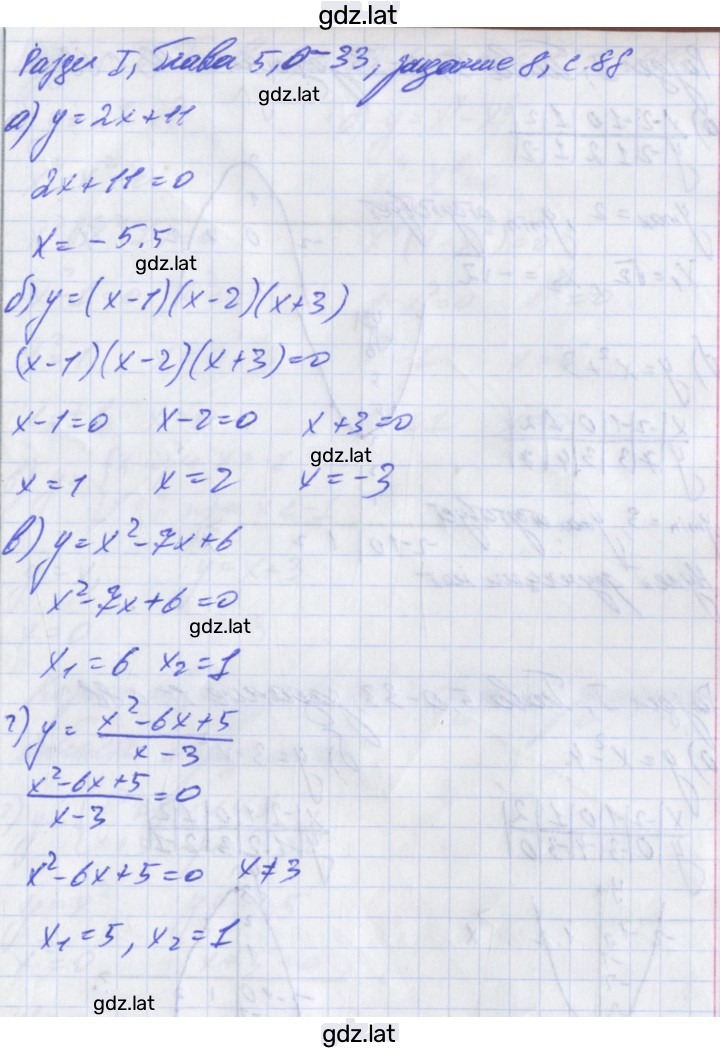 gdz.lat
Раздел I, Глава 5, О-33, задание 8, с. 88
gdz.lat
а) y=2x+11
2x+11=0
x=-5.5
gdz.lat
б) y=(x-1)(x-2)(x+3)
(x-1)(x-2)(x+3)=0
x-1=0 x-2=0 x+3=0
gdz.lat
x=1 x=2 x=-3
в) y=x²-7x+6
x²-7x+6=0
gdz.lat
x₁=6 x₂=1
г) y=(x²-6x+5)/(x-3)
(x²-6x+5)/(x-3)=0
x²-6x+5=0 x≠3
x₁=5, x₂=1
gdz.lat
gdz.lat